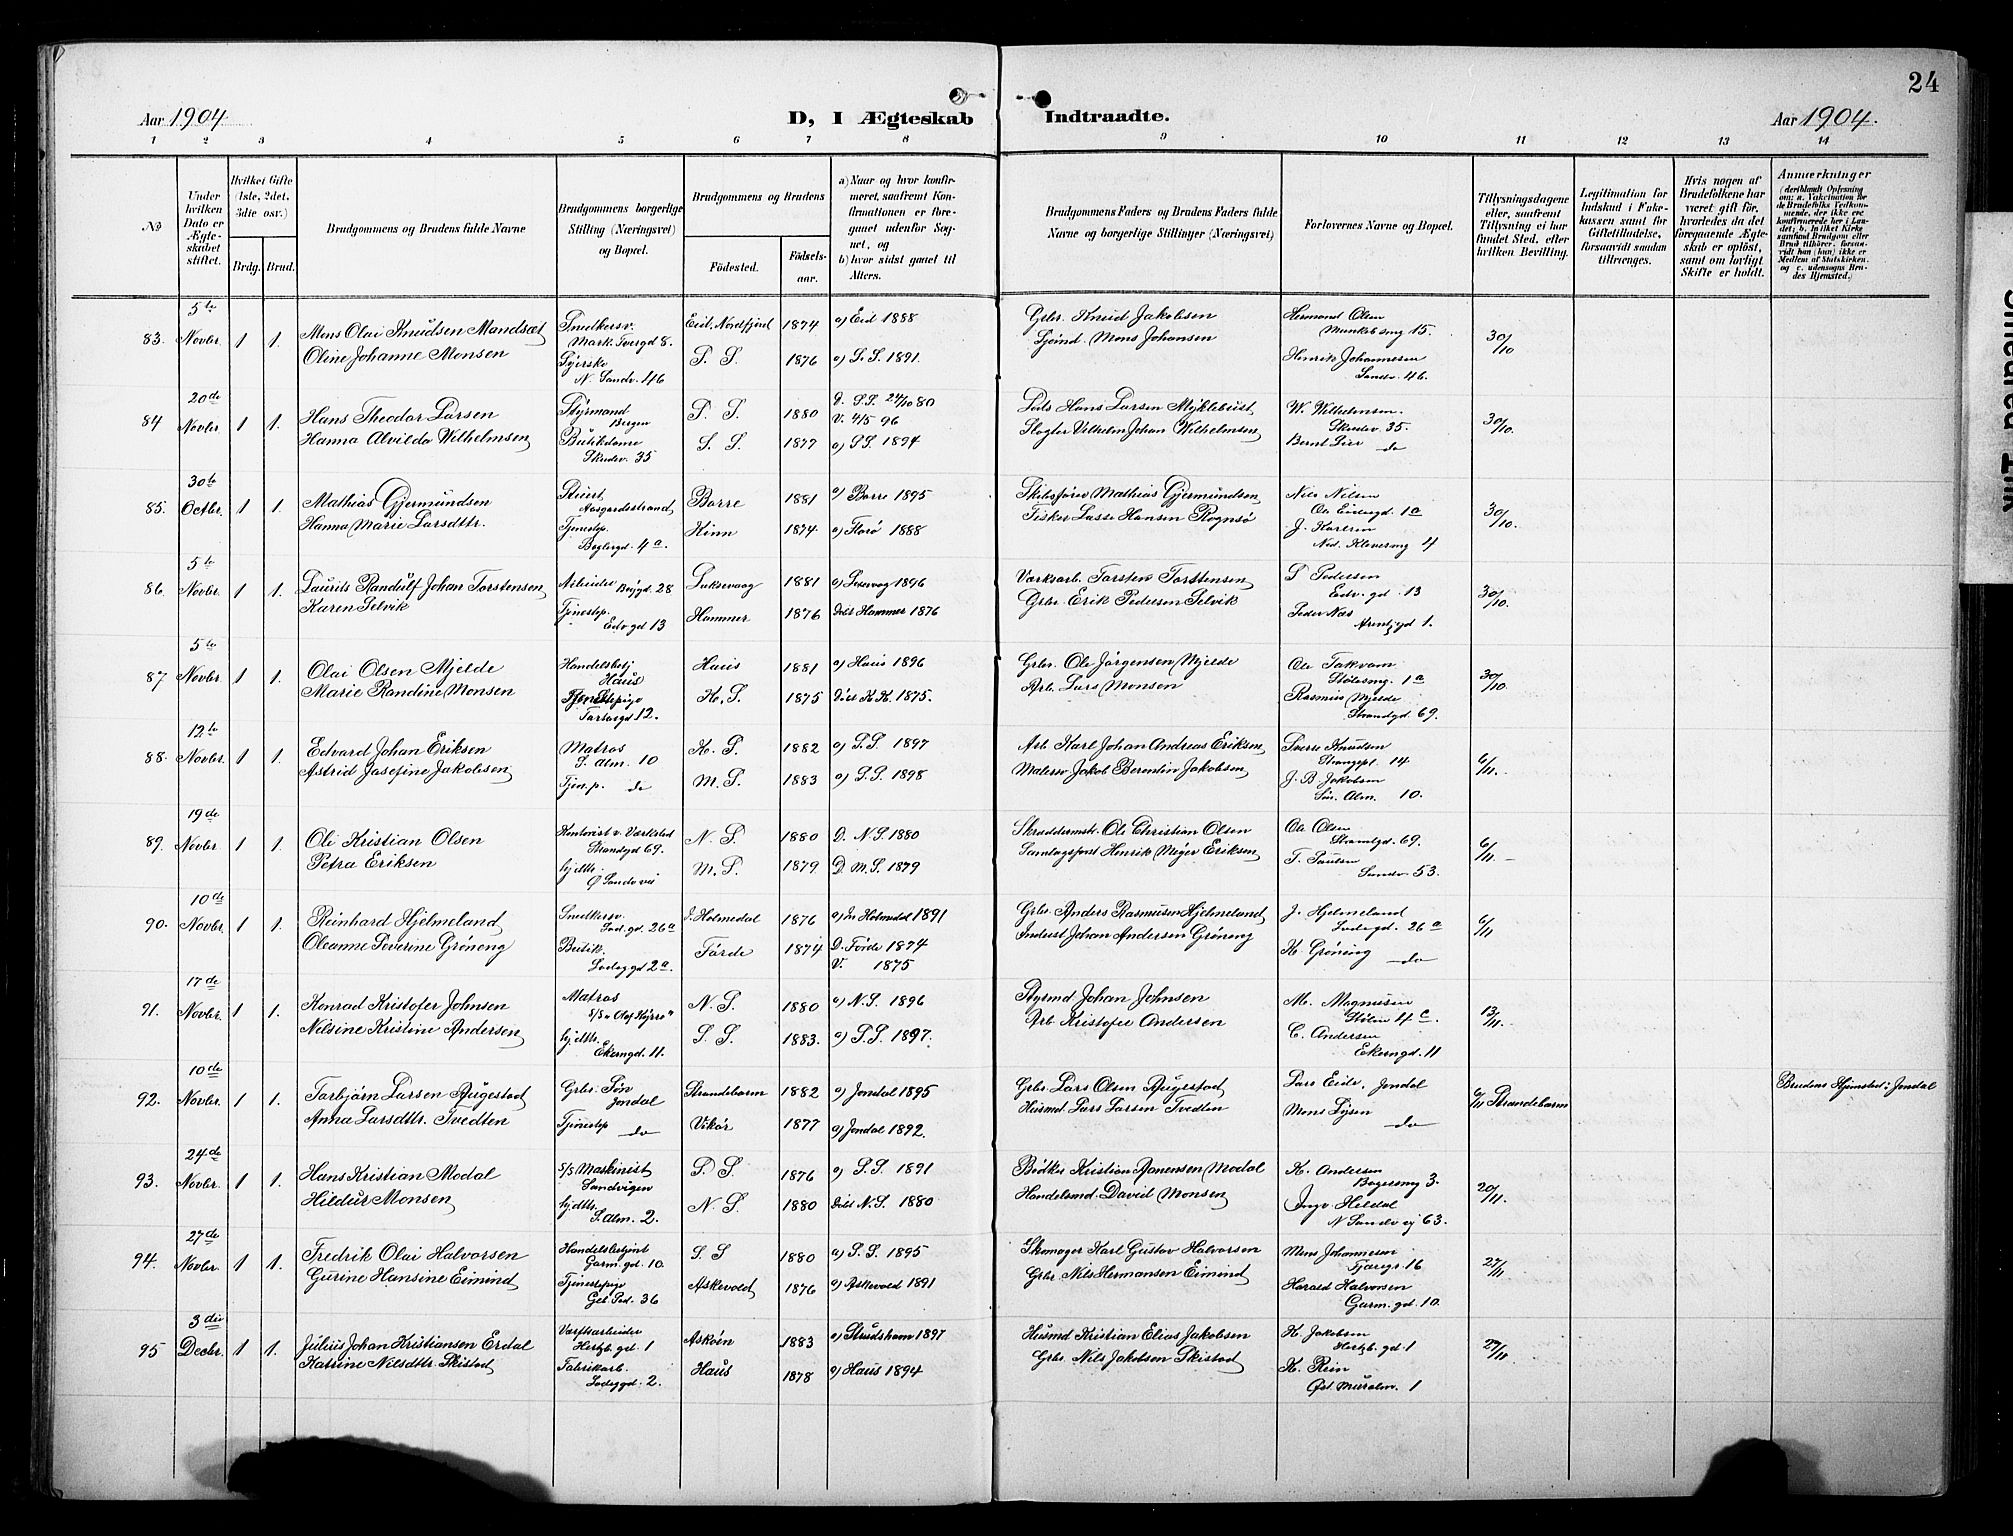 24
Aar 1904
D, I Ægteskab Indtraadte.
Aar 1904.
1 2 3 4 5 6 7 8 9 10 11 12 13 14
No
Under hvilken Dato er Ægteskabet stiftet.
Hvilket Gifte (1ste, 2det, 3die osv.)
Brdg. Brud.
Brudgommens og Brudens fulde Navne
Brudgommens borgerlige Stilling (Næringsvei) og Bopæl.
Brudgommens og Brudens
Födested.
Födsels-aar.
a) Naar og hvor konfirmeret, saafremt Konfirmationen er foregaaet udenfor Sognet, og
b) hvor sidst gaaet til Alters.
Brudgommens Faders og Brudens Faders fulde Navne og borgerlige Stillinger (Næringsvei)
Forlovernes Navne og Bopæl.
Tillysningsdagene eller, saafremt Tillysning ei har fundet Sted, efter hvilken Bevilling.
Legitimation for Indskud i Enkekassen samt for Giftetilladelse, forsaavidt saadan tiltrænges.
Hvis nogen af Brudefolkene har været gift för, hvorledes da det foregaaende Ægteskab er oplöst, samt om lovligt Skifte er holdt.
Anmærkninger
83. 5te Novbr. 1 1. Mons Olai Knudsen Mandsæt Snedkersv. Eid, Nordfjord 1874 a) Eid 1888 Gbr. Knud Jakobsen Hermond Olsen 30/10
Oline Johanne Monsen Syerske N. Sandv. 46 S. S. 1876 a) S. S. 1891. Sjömd. Mons Johansen Henrik Johannesen Sandv. 46.
84 20de Novbr. 1 1. Hans Theodor Larsen Styrmand Bergen S. S. 1880 D. S.S. 24/10 80 V. 4/5 96 Lods Hans Larsen Myklebust W. Wilhelmsen. Skudev. 35. 30/10.
Hanna Alvilda Wilhelmsen Butikdame Skudev. 35 S. S. 1877 a) S.S. 1894 Slagter Vilhelm Johan Wilhelmsen do
85. 30te Octbr. 1 1. Mathias Gjermundsen Stuert Aasgaardsstrand Borre 1881 a) Borre 1895 Skibsförer Mathias Gjermundsen Nils Nilsen 1a 30/10.
Hanna Marie Larsdttr. Tjenestep. 4a. Kinn 1874 a) Florø 1888 Fisker Lasse Hansen Rognsö J. Karlsen Ned. Kleversmg 4
86. 5te Novbr. 1 1. Laurits Randulf Johan Torstensen Arbeider 28 Laksevaag 1881 a) 1896 Værksarb. Torsten Torstensen S Pedersen Edv. gd. 13 30/10.
Karen Selvik Tjenestep. Edv gd 13 Hammer 1876 Döbt Hammer 1876 Gbr. Erik Pedersen Selvik Peder Næs 1.
87. 5te Novbr. 1 1. Olai Olsen Mjelde Handelsbetj Haus Haus 1881 a) Haus 1896 Gbr. Ole Jörgensen Mjelde Ole Takvam 1a 30/10.
Marie Randine Monsen Tjenestepige 12. K. S. 1875 Döbt K.K. 1875. Arb. Lars Monsen Rasmus Mjelde Strandgd 69.
88. 12te Novbr. 1 1. Edvard Johan Eriksen Matros S. Alm. 10 K. S. 1882 a) S.S. 1897 Arb. Karl Johan Andreas Eriksen Sverre Knudsen 14 6/11.
Astrid Josefine Jakobsen Tjen.p. do M. S. 1883 a) S. S. 1898 Malersv Jakob Berentin Jakobsen J. B. Jakobsen Sön. Alm. 10.
89. 19de Novbr. 1 1. Ole Kristian Olsen Kontorist v. Værksted Strandgd 69. N. S. 1880 D. N.S. 1880 Skræddermstr. Ole Christian Olsen Ole Olsen Strandgd. 69. 6/11.
Petra Eriksen hjdttr. Ø Sandvei M. S. 1879 D. M. S. 1879 Henrik Meyer Eriksen T. Paulsen Sandv. 53.
90. 10de Novbr. 1 1. Reinhard Hjelmeland Snedkersv. Lad.gd. 26a I. Holmedal 1876 a) In Holmdal 1891 Gbr. Anders Rasmusen Hjelmeland J. Hjelmeland Ladegd. 26a 6/11
Oleanne Severine Gröneng Butik. Ladeggd 2a. Förde 1874 D. Förde 1874 V. 1875 Inderst Johan Andersen Gröneng K. Gröneng do
91. 17de Novbr. 1 1. Konrad Kristofer Johnsen Matros S/S "Olaf Kyrre" N. S. 1880 a) N.S. 1896 Styrmd Johan Johnsen M. Magnusen Stölen 4c. 13/11.
Nilsine Kristine Andersen hjdttr. Ekerngd. 11. S. S. 1883. a) S. S. 1897. Arb Kristofer Andersen C. Andersen Ekerngd. 11
92. 10de Novbr. 1 1. Torbjørn Larsen Augestad Gbr. Sön Jondal Strandebarm 1882 a) Jondal 1895 Gbr. Lars Olsen Augestad Lars Eide, Jondal 6/11 Strandebarm Brudens Hjemsted: Jondal
Anna Larsdttr. Tvedten Tjenestep do Vikör 1877 a) Jondal 1892. Husmd Lars Larsen Tvedten Mons Lysen do
93. 24de Novbr. 1 1. Hans Kristian Modal S/S Maskinist Sandvigen S. S. 1876 a) S. S. 1891 Bödker Kristian Modal K. Andersen 3. 20/11.
Hildur Monsen hjdttr. S. Alm. 2. N. S. 1880 Döbt N. S. 1880 Handelsmd. David Monsen Ingv. Hildal N Sandvej 63.
94. 27de Novbr. 1 1. Fredrik Olai Halvorsen Handelsbetjent Garm. gd. 10 S. S 1880 a) S. S. 1895 Skomager Karl Gustav Halvorsen Mons Johannesen 16 27/11
Gurine Hansine Eimind Tjenestepige 36 Askevold 1876 a) Askevold 1891 Gbr. Nils Hermansen Eimind Harald Halvorsen Garm. gd. 10.
95 3die Decbr. 1 1. Julius Johan Kristiansen Erdal Værftsarbeider Hertzb. gd. 1 Askøen 1883 a) Strudshavn 1897 Husmd Kristian Elias Jakobsen K. Jakobsen Hertzb. gd. 1 27/11
Katrine Nilsdttr. Skistad Fabrikarb. Ladeggd. 2. Haus 1878 a) Haus 1894 Gbr. Nils Jakobsen Skistad K. Rein Øst. Muralm. 1